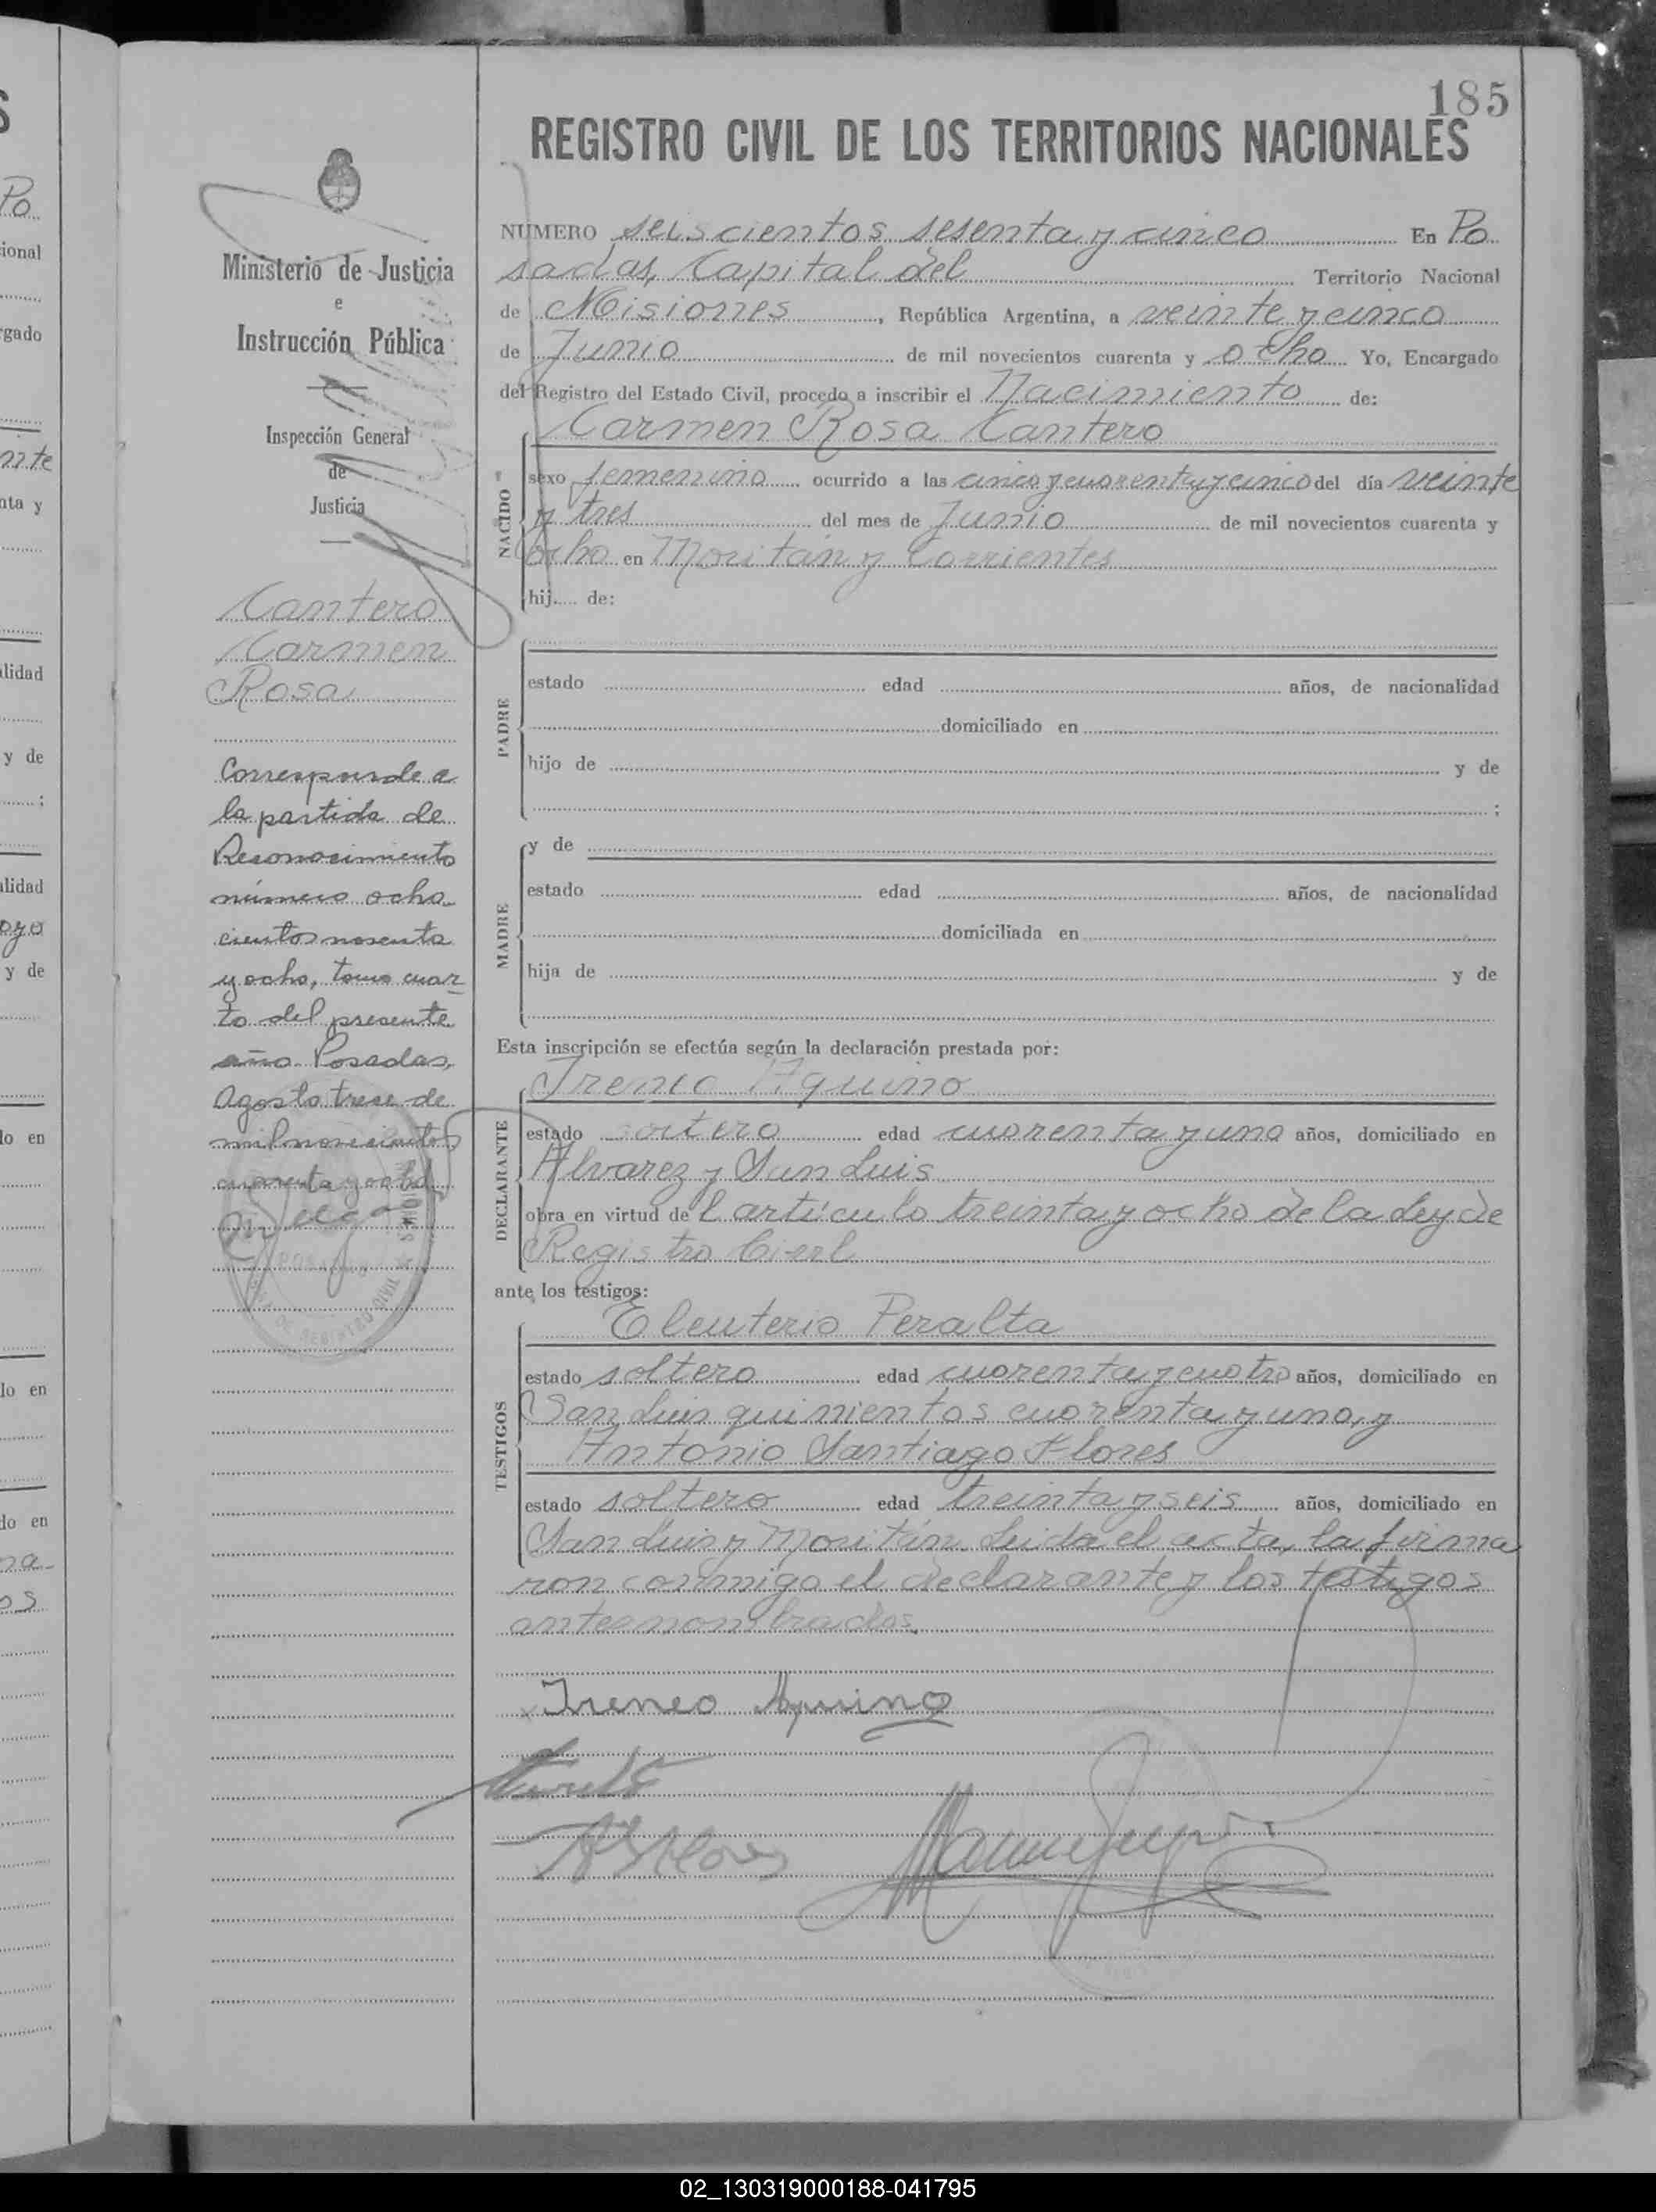 185
REGISTRO CIVIL DE LOS TERRITORIOS NACIONALES
Ministerio de Justicia
e
Instrucción Pública
Inspección General
de
Justicia
Cantero
Carmen
Rosa
Corresponde a
la partida de
Reconocimiento
número ocho
cientos noventa
y ocho, tomo cuar
to del presente
año. Posadas,
Agosto trece de
mil novecientos
cuarenta y ocho
NUMERO seiscientos sesenta y cinco En Po
sadas, Capital del Territorio Nacional
de Misiones, República Argentina, a veinte y cinco
de Junio de mil novecientos cuarenta y ocho Yo, Encargado
del Registro del Estado Civil, procedo a inscribir el Nacimiento de:
NACIDO
Carmen Rosa Cantero
sexo femenino ocurrido a las cinco y cuarenta y cinco del día veinte
y tres del mes de Junio de mil novecientos cuarenta y
ocho en Moritán y Corrientes
hij..... de:
PADRE
estado edad años, de nacionalidad
domiciliado en
hijo de y de
;
MADRE
y de
estado edad años, de nacionalidad
domiciliada en
hija de y de
Esta inscripción se efectúa según la declaración prestada por:
DECLARANTE
Ireneo Aquino
estado soltero edad cuarenta y uno años, domiciliado en
Alvarez y San Luis
obra en virtud de l artículo treinta y ocho de la Ley de
Registro Civil
ante los testigos:
TESTIGOS
Eleuterio Peralta
estado soltero edad cuarenta y cuatro años, domiciliado en
San Luis quinientos cuarenta y uno, y
Antonio Santiago Flores
estado soltero edad treinta y seis años, domiciliado en
San Luis y Moritán. Leida el acta, la firma
ron conmigo el declarante y los testigos
antesnombrados.
Ireneo Aquino
02_130319000188-041795